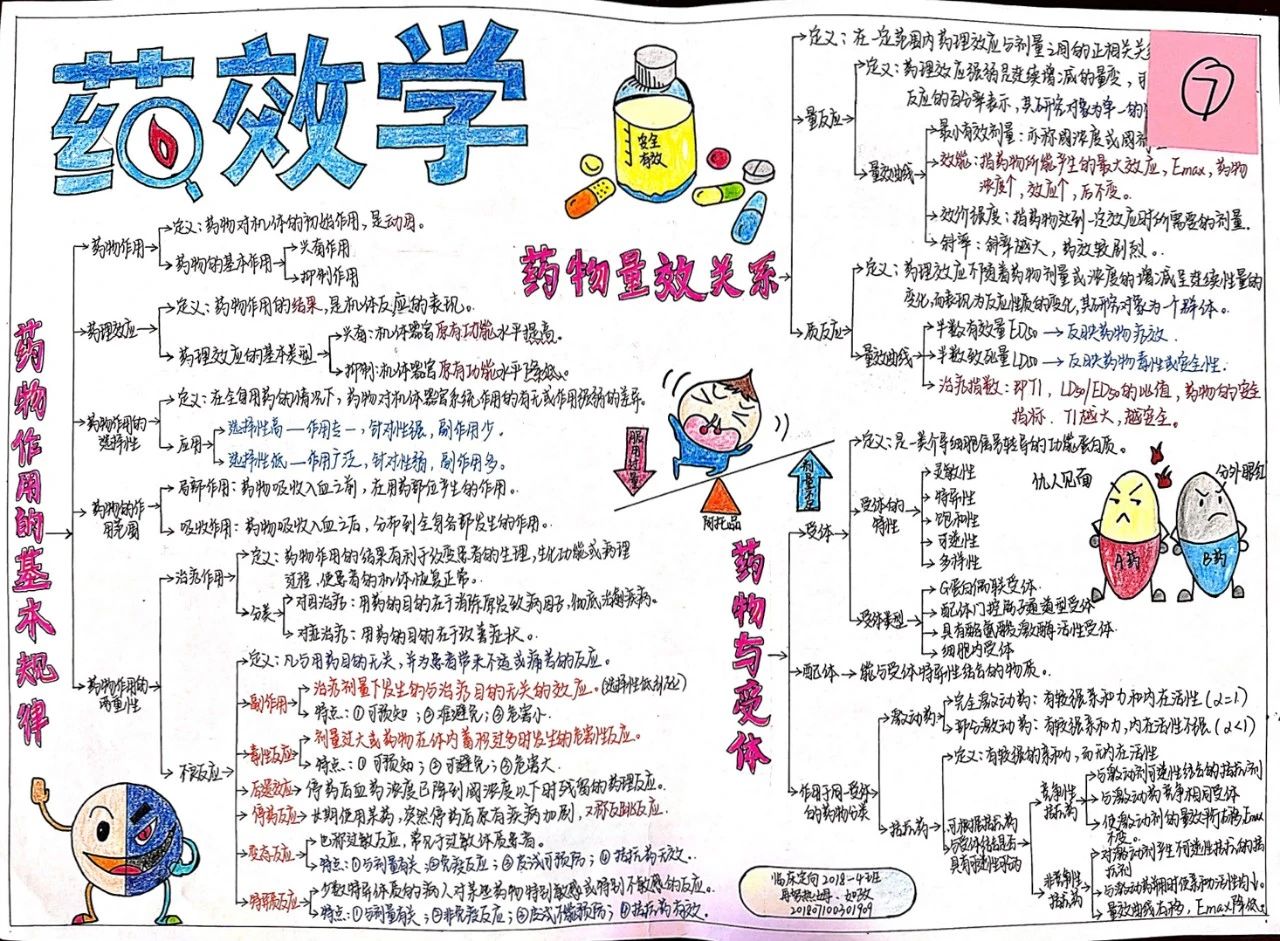 药效学
安全
有效
⑦
药物作用的基本规律
药物作用
定义：药物对机体的初始作用，是动因。
药物的基本作用
兴奋作用
抑制作用
药理效应
定义：药物作用的结果，是机体反应的表现。
药理效应的基本类型
兴奋：机体器官原有功能水平提高。
抑制：机体器官原有功能水平降低。
药物作用的
选择性
定义：在全身用药的情况下，药物对机体器官系统作用的有无或作用强弱的差异。
应用
选择性高—作用专一，针对性强，副作用少。
选择性低—作用广泛，针对性弱，副作用多。
药物的作
用范围
局部作用：药物吸收入血之前，在用药部位产生的作用。
吸收作用：药物吸收入血之后，分布到全身各部发生的作用。
药物作用的
两重性
治疗作用
定义：药物作用的结果有利于改变患者的生理、生化功能或病理
过程，使患者的机体恢复正常。
分类
对因治疗：用药的目的在于消除原发致病因子，彻底治愈疾病。
对症治疗：用药的目的在于改善症状。
不良反应
定义：凡与用药目的无关，并为患者带来不适或痛苦的反应。
副作用
治疗剂量下发生的与治疗目的无关的效应。(选择性低引起)
特点：①可预知；②难避免；③危害小.
毒性反应
剂量过大或药物在体内蓄积过多时发生的危害性反应。
特点：①可预知；②可避免；③危害大.
后遗效应
停药后血药浓度已降到阈浓度以下时残留的药理反应。
停药反应
长期使用某药，突然停药后原有疾病加剧，又称反跳反应.
变态反应
也称过敏反应，常见于过敏体质患者。
特点：①与剂量有关；②免疫反应；③皮试可预防；④拮抗药无效.
特异质反应
少数特异体质的病人对某些药物特别敏感或特别不敏感的反应。
特点：①与剂量有关；②非免疫反应；③皮试不能预防；④拮抗药有效.
药物量效关系
定义：在一定范围内药理效应与剂量之间的正相关关
量反应
定义：药理效应强弱是连续增减的量变，
反应的百分率表示，其研究对象为单一的
量效曲线
最小有效剂量：亦称阈浓度或阈剂
效能：指药物所能产生的最大效应，Emax，药物
浓度↑，效应↑，后不变。
效价强度：指药物达到一定效应时所需要的剂量.
斜率：斜率越大，药效较剧烈。
质反应
定义：药理效应不随着药物剂量或浓度的增减呈连续性量的
变化，而表现为反应性质的变化，其研究对象为一个群体。
量效曲线
半数有效量ED50→反映药物疗效.
半数致死量LD50→反映药物毒性或安全性.
治疗指数：即TI，LD50/ED50的比值，药物的安全
指标.TI越大，越安全。
服用过量
剂量不足
阿托品
药物与受体
受体
定义：是一类介导细胞信号转导的功能蛋白质。
受体的
特性
灵敏性
特异性
饱和性
可逆性
多样性
受体类型
G蛋白偶联受体.
配体门控离子通道型受体
具有酪氨酸激酶活性受体.
细胞内受体
仇人见面
分外眼红
A药
B药
配体→能与受体特异性结合的物质。
作用于同一受体
的药物分类
激动药
完全激动药：有较强亲和力和内在活性(α=1)
部分激动药：有较强亲和力，内在活性不强(α<1)
拮抗药
定义：有较强的亲和力，而无内在活性
可根据拮抗药
与受体结合是否
具有可逆性分为
竞争性
拮抗药
与激动剂可逆性结合的拮抗剂
与激动药竞争相同受体
使激动剂的量效所右移，Emax
不变。
非竞争性
拮抗药
对激动剂产生不可逆性拮抗的拮
抗剂
与激动药并用时使亲和力活性均↓.
量效曲线右移，Emax降低.
临床定向2018-4班
201807100301909